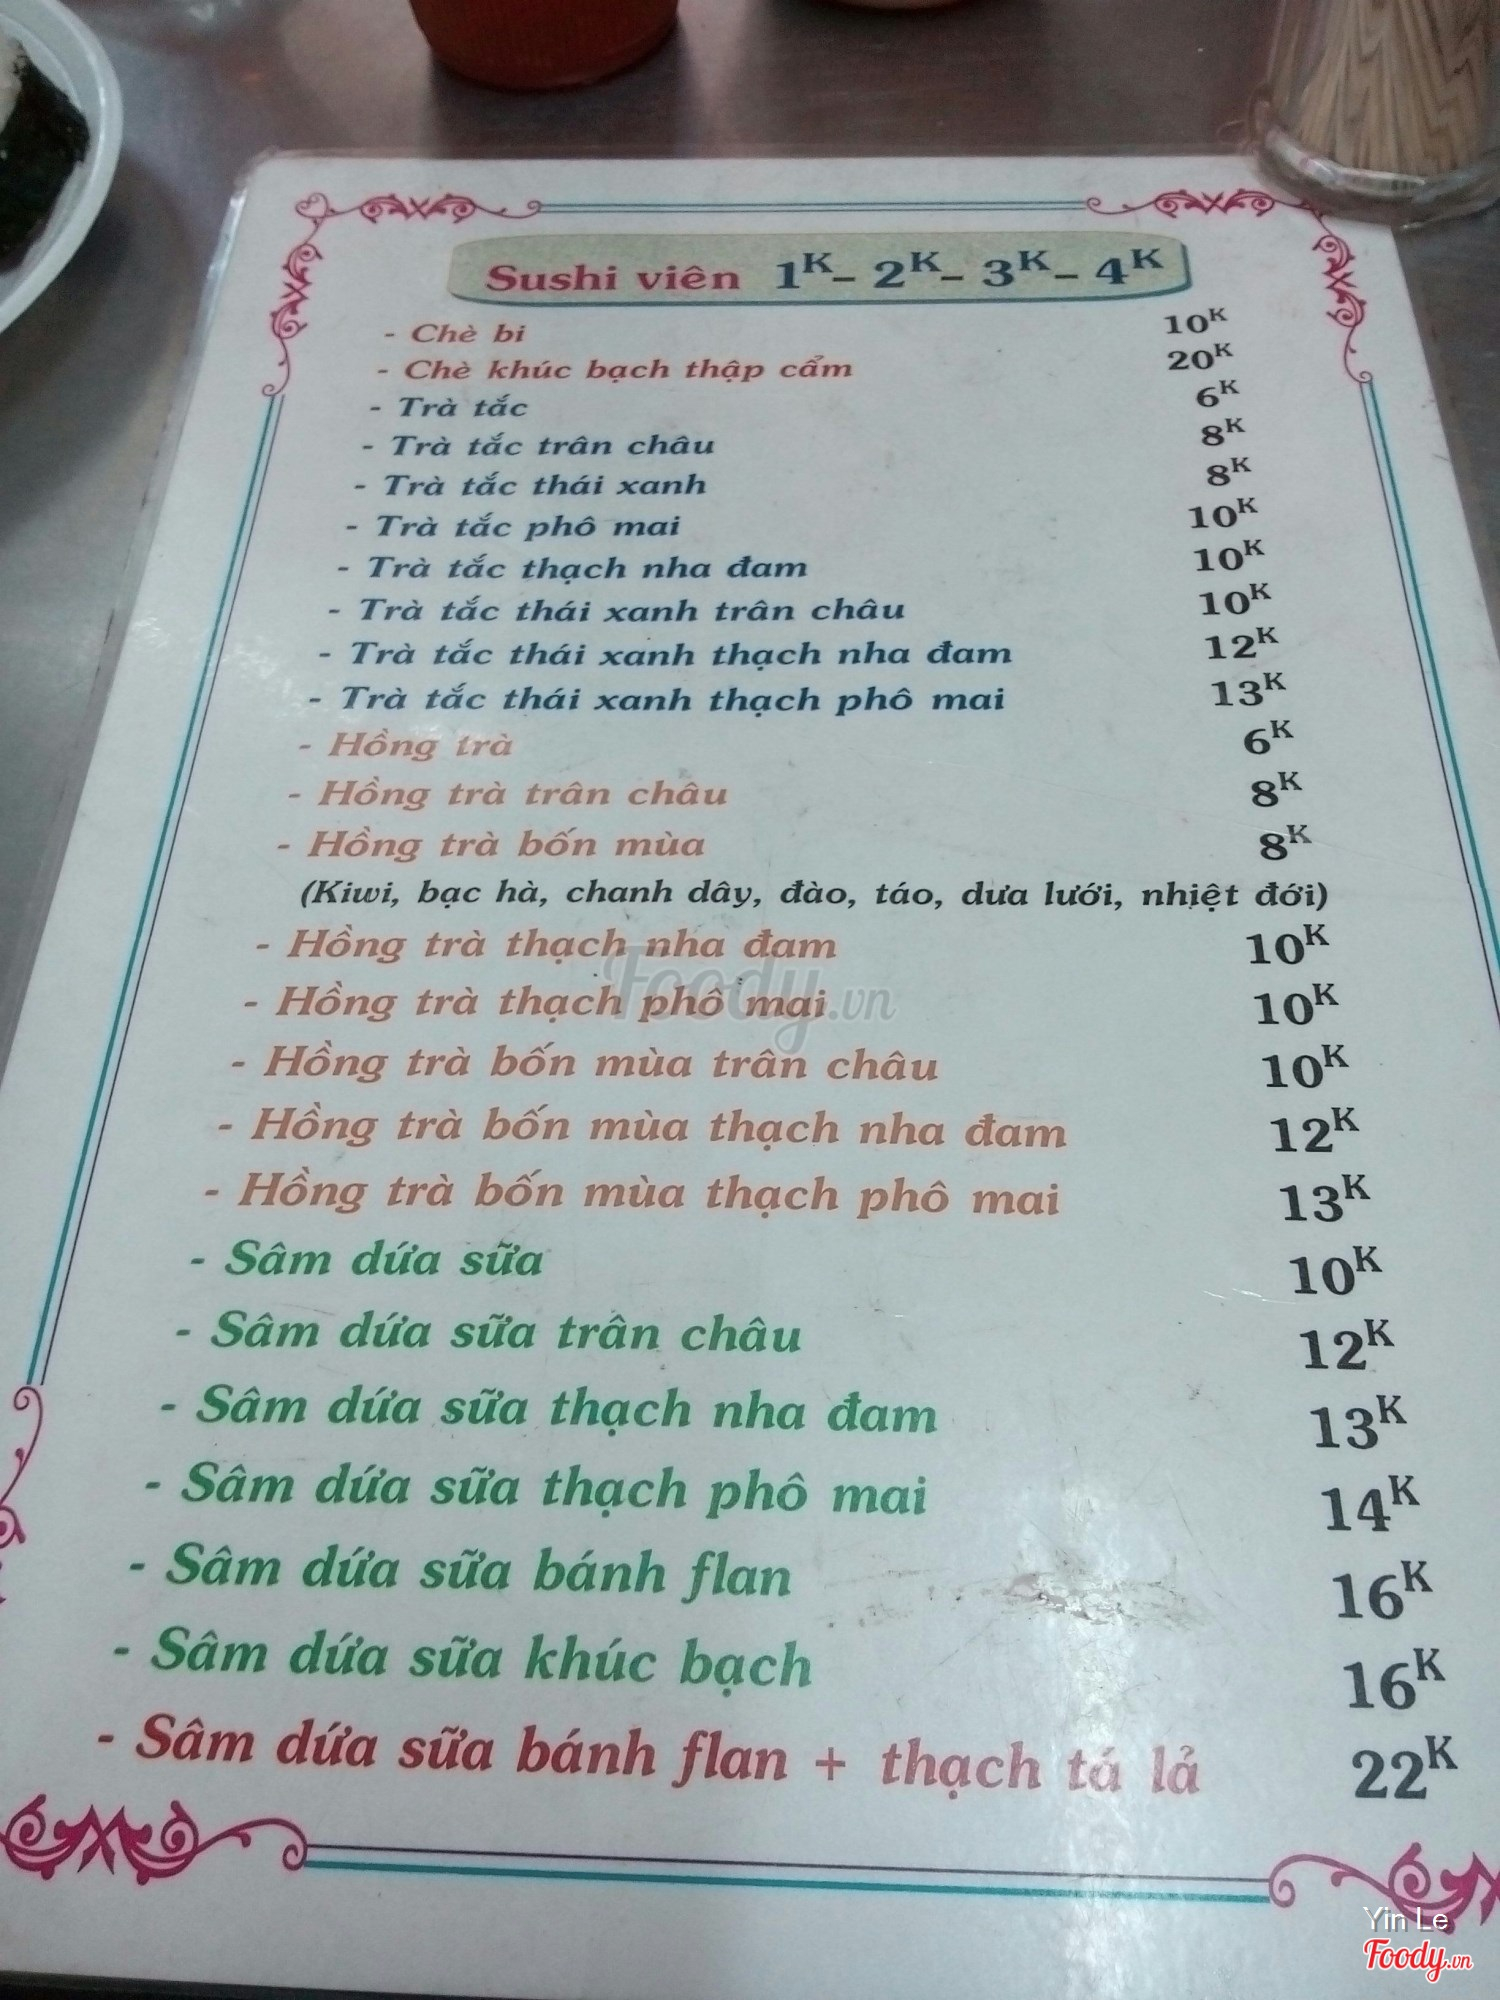 Sushi viên 1K - 2K - 3K - 4K
- Chè bi 10K
- Chè khúc bạch thập cẩm 20K
- Trà tắc 6K
- Trà tắc trân châu 8K
- Trà tắc thái xanh 8K
- Trà tắc phô mai 10K
- Trà tắc thạch nha đam 10K
- Trà tắc thái xanh trân châu 10K
- Trà tắc thái xanh thạch nha đam 12K
- Trà tắc thái xanh thạch phô mai 13K
- Hồng trà 6K
- Hồng trà trân châu 8K
- Hồng trà bốn mùa 8K
(Kiwi, bạc hà, chanh dây, đào, táo, dưa lưới, nhiệt đới)
- Hồng trà thạch nha đam 10K
- Hồng trà thạch phô mai 10K
Foody.vn
- Hồng trà bốn mùa trân châu 10K
- Hồng trà bốn mùa thạch nha đam 12K
- Hồng trà bốn mùa thạch phô mai 13K
- Sâm dứa sữa 10K
- Sâm dứa sữa trân châu 12K
- Sâm dứa sữa thạch nha đam 13K
- Sâm dứa sữa thạch phô mai 14K
- Sâm dứa sữa bánh flan 16K
- Sâm dứa sữa khúc bạch 16K
- Sâm dứa sữa bánh flan + thạch tá lả 22K
Yin Le
Foody.vn